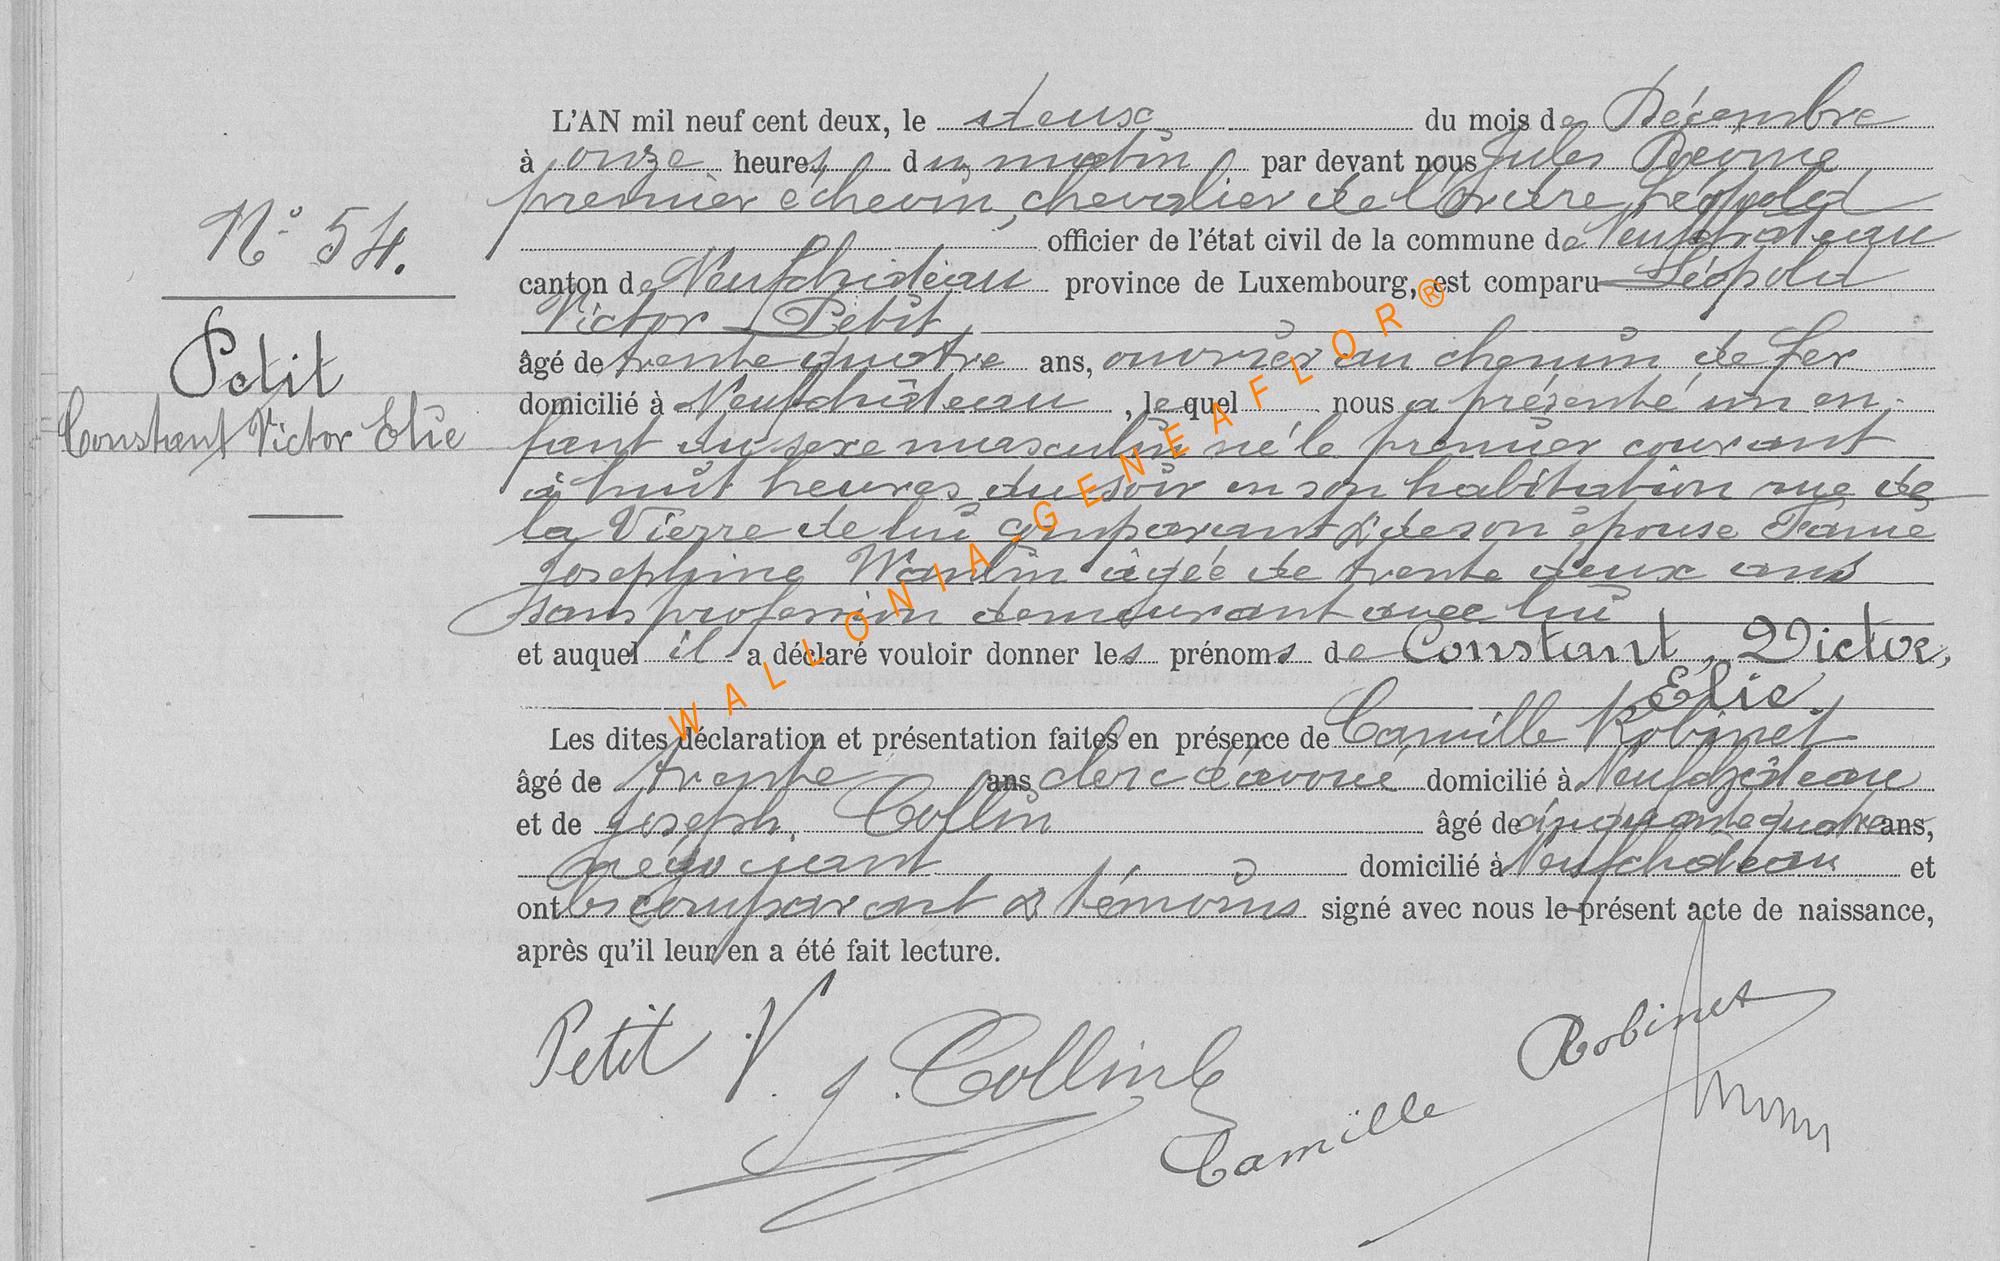 N° 54.
Petit
Constant Victor Elie
L'AN mil neuf cent deux, le deux du mois de Décembre
à onze heures du matin par devant nous Jules
premier échevin, chevalier de l'Ordre Léopold
officier de l'état civil de la commune de Neufchâteau
canton de Neufchâteau province de Luxembourg, est comparu Léopold
Victor Petit
âgé de trente quatre ans, ouvrier au chemin de fer
domicilié à Neufchâteau, lequel nous a présenté un en-
fant du sexe masculin né le premier courant
à huit heures du soir en son habitation rue de
la Vierre de lui comparant & de son épouse
Joséphine âgée de trente deux ans
sans profession demeurant avec lui
et auquel il a déclaré vouloir donner les prénoms de Constant, Victor,
Elie.
Les dites déclaration et présentation faites en présence de Camille Robinet
âgé de trente ans clerc d'avoué domicilié à Neufchâteau
et de Joseph Collin âgé de cinquante quatre ans,
négociant domicilié à Neufchâteau et
ont les comparant & témoins signé avec nous le présent acte de naissance,
après qu'il leur en a été fait lecture.
Petit V.
J. Collin
Camille Robinet
WALLONIA-GENEAFLOR®